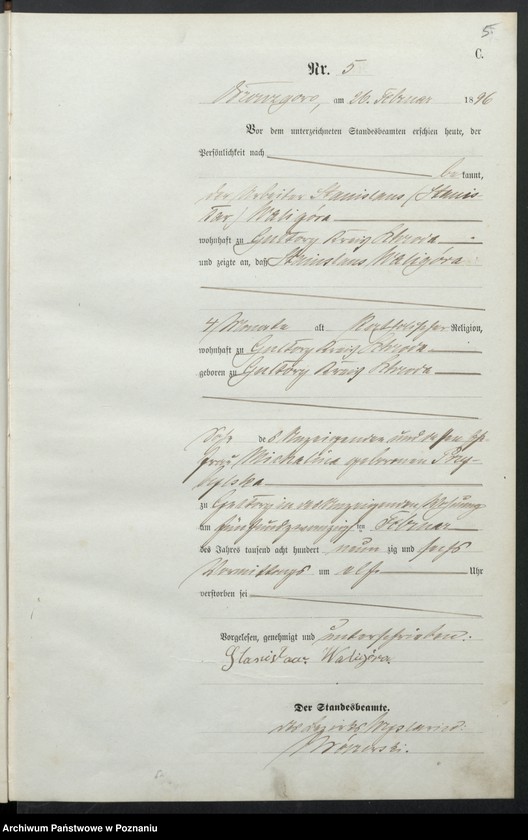 5.
C.
Nr. 5
am 26. Februar 1896
Vor dem unterzeichneten Standesbeamten erschien heute, der
Persönlichkeit nach
be kannt,
der Arbeiter Stanislaus (Stanis-
law) Waligóra
wohnhaft zu Gultowy Kreis Schroda
und zeigte an, daß Stanislaus Waligóra
4 Monate alt katholischer Religion,
wohnhaft zu Gultowy Kreis Schroda
geboren zu Gultowy Kreis Schroda
Sohn des Anzeigenden und dessen Ehe-
frau Michalina geborenen Przy-
bylska
zu Gultowy in des Anzeigenden Wohnung
am fünfundzwanzig ten Februar
des Jahres tausend acht hundert neun zig und sechs
Vormittags um elf Uhr
verstorben sei
Vorgelesen, genehmigt und unterschrieben:
Stanisław Waligóra
Der Standesbeamte.
des Bezirks
Archiwum Państwowe w Poznaniu